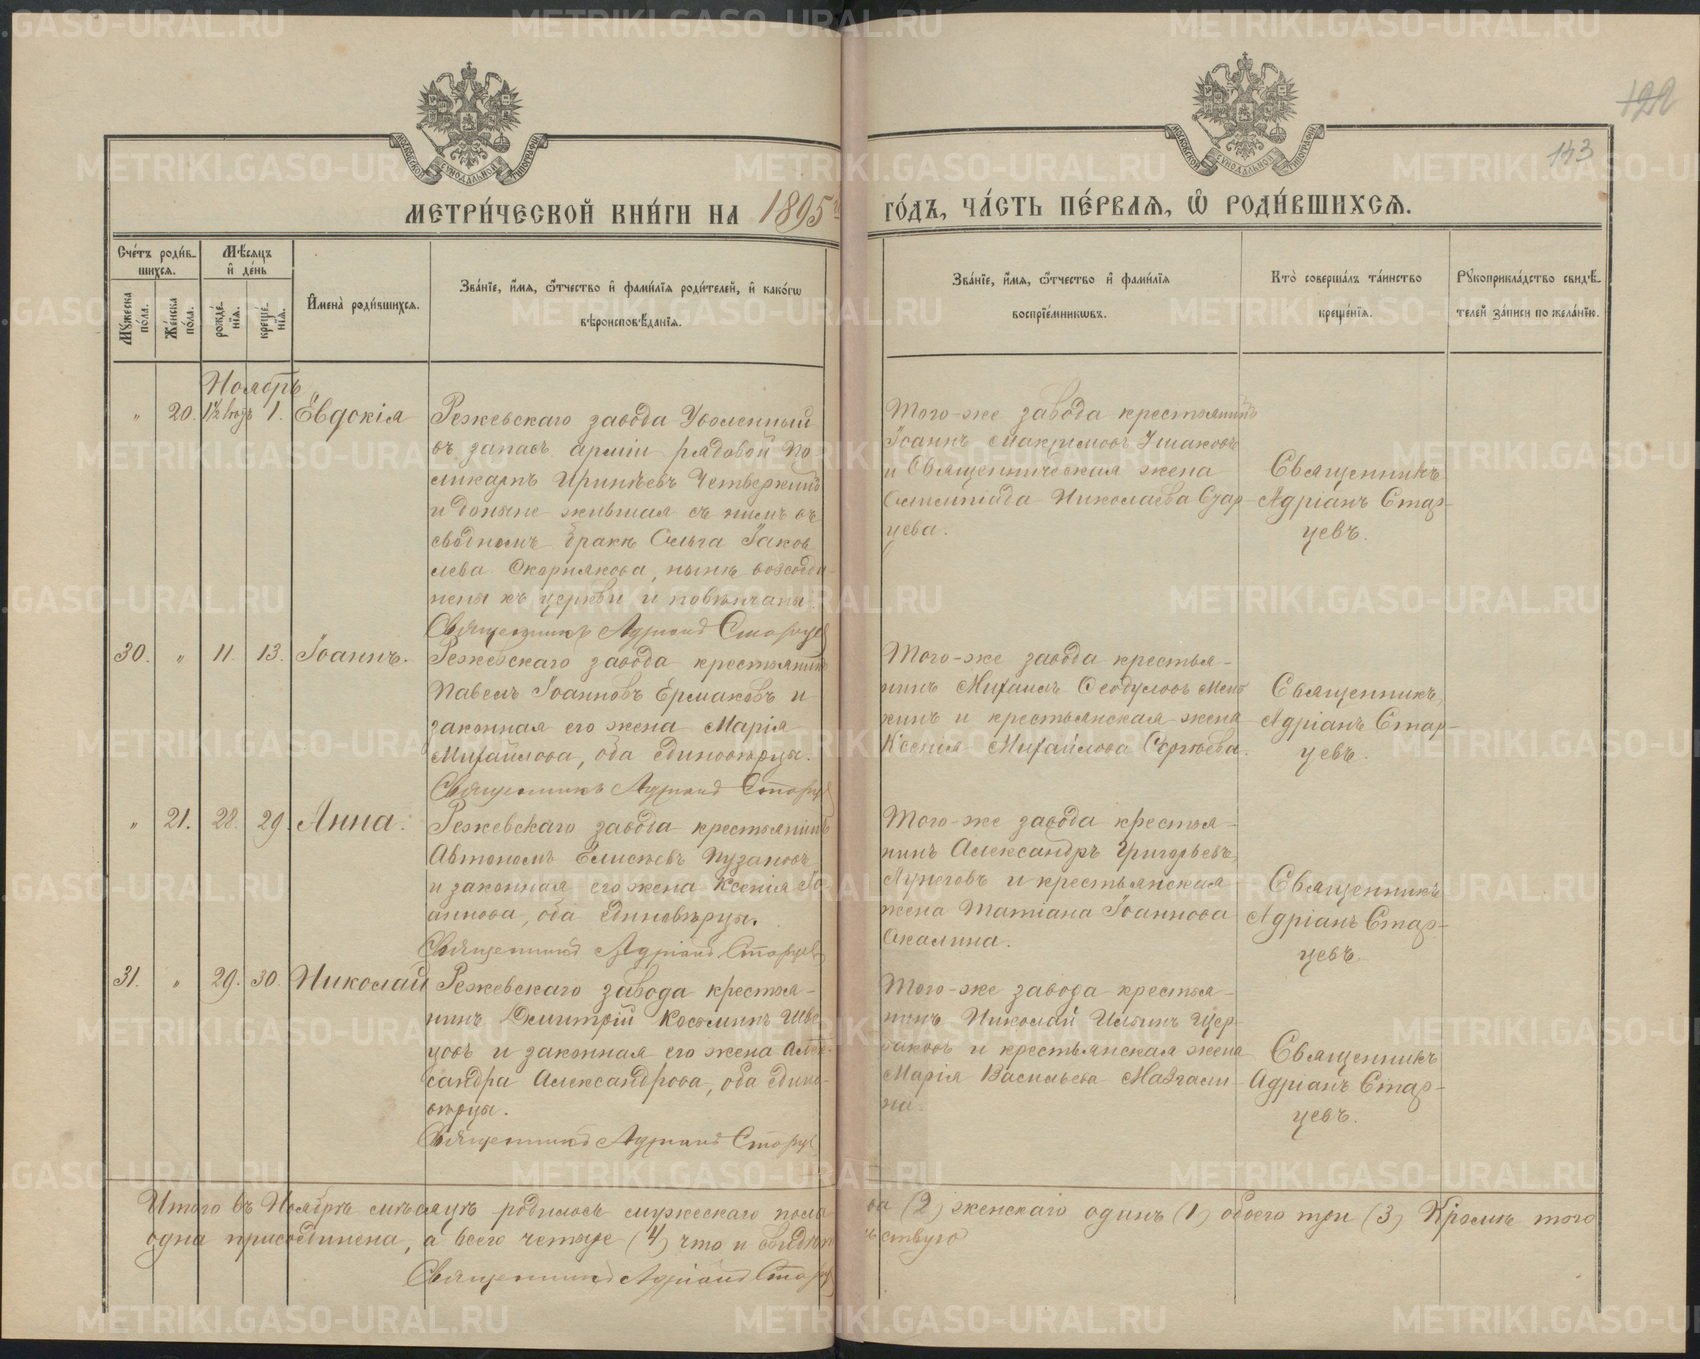 METRIKI.GASO-URAL.RU
122
143
МОСКОВСКОЙ СѴНОДАЛЬНОЙ ТИПОГРАФІИ
МЕТРИ́ЧЕСКОЙ КНИ́ГИ НА 1895 й
ГО́ДЪ, ЧА́СТЬ ПЕ́РВАЯ, Ѽ РОДИ́ВШИХСЯ.
Сче́тъ роди́в-
шихся.
Мѣ́сяцъ
и҆ де́нь
Му́жеска по́ла.
Же́нска по́ла.
рожде́-
нїя.
креще́-
нїя.
И҆мена̀ роди́вшихся.
Зва́нїе, и҆́мя, ѻ҆́тчество и҆ фами́лїя роди́телей, и҆ како́гѡ
вѣроисповѣ́данїя.
Зва́нїе, и҆́мя, ѻ҆́тчество и҆ фами́лїя
воспрїе́мникѡвъ.
Кто̀ соверша́лъ та́инство
креще́нїя.
Рꙋкоприкла́дство свидѣ́-
телей за́писи по жела́нїю.
Ноябрь
" 20. 1½ года 1. Евдокія
Режевскаго завода Уволенный
въ запасъ арміи рядовой По
ликарпъ Иринѣевъ Четверкинъ
и доныне жившая съ нимъ въ
сводномъ бракѣ Ольга Іаков
лева Скорнякова, нынѣ возсоеди-
нены къ церкви и повѣнчаны.
Священникъ Адріанъ Старцев
Того-же завода крестьянинъ
Іоаннъ Максимовъ Ушаковъ
и Священническая жена
Олимпіада Николаева Стар
цева.
Священникъ
Адріанъ Стар-
цевъ.
30. " 11. 13. Іоаннъ.
Режевскаго завода крестьянинъ
Павелъ Іоанновъ Ермаковъ и
законная его жена Марія
Михайлова, оба единовѣрцы.
Священникъ Адріанъ Старцев
Того-же завода крестья-
нинъ Михаилъ Ѳеодуловъ
кинъ и крестьянская жена
Ксенія Михайлова Сергѣева.
Священникъ
Адріанъ Стар-
цевъ.
" 21. 28. 29. Анна.
Режевскаго завода крестьянинъ
Автономъ Елисѣевъ Пузановъ
и законная его жена Ксенія Іо-
аннова, оба единовѣрцы.
Священникъ Адріанъ Старцев
Того-же завода крестья-
нинъ Александръ Григорьевъ
и крестьянская
жена Татіана Іоаннова
Окалина.
Священникъ
Адріанъ Стар-
цевъ.
31. " 29. 30. Николай
Режевскаго завода крестья-
нинъ Димитрій Косьминъ Шве
цовъ и законная его жена Алек-
сандра Александрова, оба едино-
вѣрцы.
Священникъ Адріанъ Старцев
Того-же завода крестья-
нинъ Николай Ильинъ Щер-
баковъ и крестьянская жена
Марія Васильева
на.
Священникъ
Адріанъ Стар-
цевъ.
Итого въ Ноябрѣ мѣсяцѣ родилось мужескаго пола два (2) женскаго одинъ (1) обоего три (3) Кромѣ того
одна присоединена, а всего четыре (4) что и свидѣтельствую
Священникъ Адріанъ Старцев